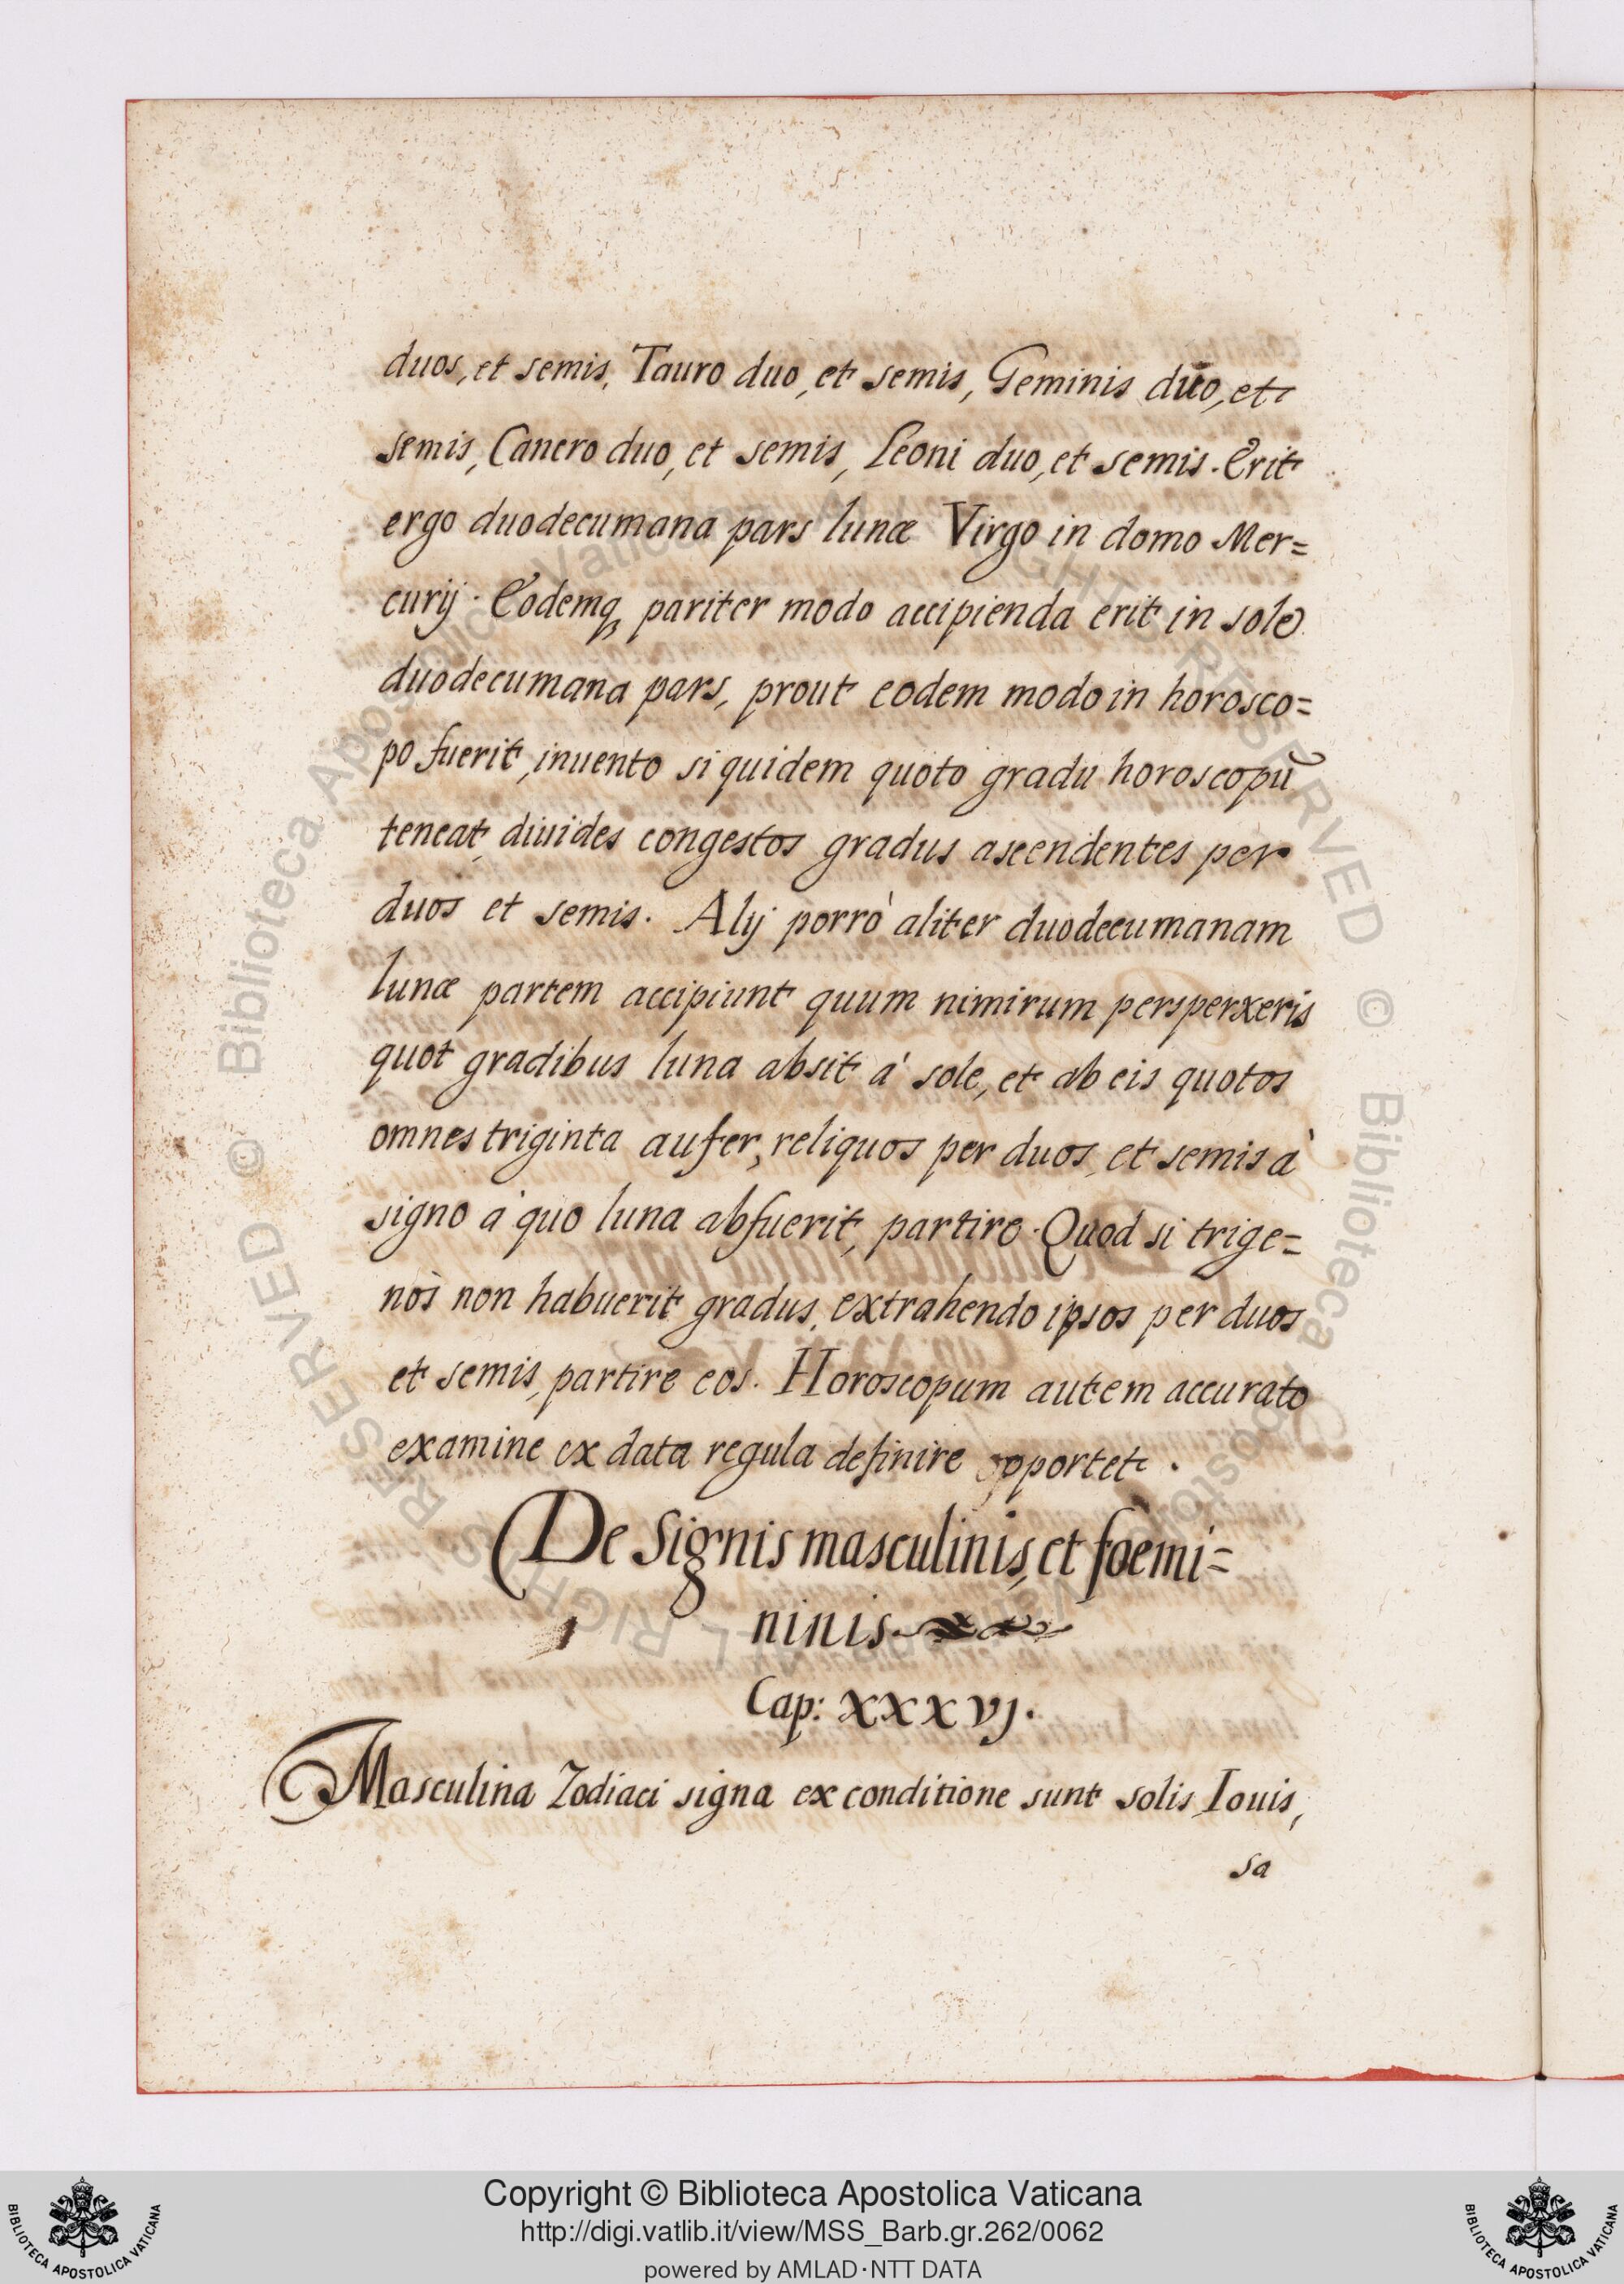 duos, et semis, Tauro duo, et semis, Geminis duo, et
semis, Cancro duo, et semis, Leoni duo, et semis. Erit
ergo duodecumana pars lunæ Virgo in domo Mer=
curij. Eodemq, pariter modo accipienda erit in sole
duodecumana pars, prout eodem modo in horosco=
po fuerit, inuento siquidem quoto gradu horoscopũ
teneat, diuides congestos gradus ascendentes per
duos et semis. Alij porrò aliter duodecumanam
lunæ partem accipiunt quum nimirum persperxeris
quot gradibus luna absit à sole, et ab eis quotos
omnes triginta aufer, reliquos per duos, et semis à
signo à quo luna abfuerit, partire. Quod si trige=
nos non habuerit gradus, extrahendo ipsos per duos
et semis, partire eos. Horoscopum autem accurato
examine ex data regula definire opportet.
De Signis masculinis, et foemi=
ninis
Cap: XXXVJ.
Masculina Zodiaci signa ex conditione sunt solis, Iouis,
sa
© Biblioteca Apostolica Vaticana ALL RIGHTS RESERVED
Copyright © Biblioteca Apostolica Vaticana
http://digi.vatlib.it/view/MSS_Barb.gr.262/0062
powered by AMLAD·NTT DATA
BIBLIOTECA APOSTOLICA VATICANA
BIBLIOTECA APOSTOLICA VATICANA